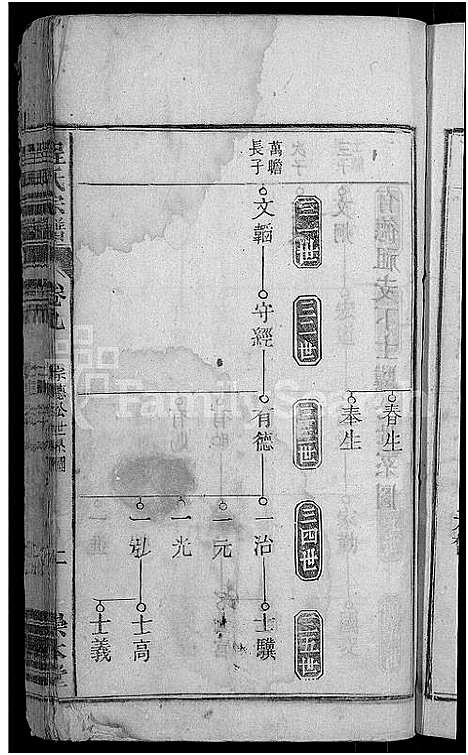 程氏宗譜
卷九
崇德公世系圖
三一世
三二世
三三世
三四世
三五世
春生
奉生
萬瞻
長子
文韜
守經
有德
一治
士驥
一元
一光
士高
士義
FamilySearch